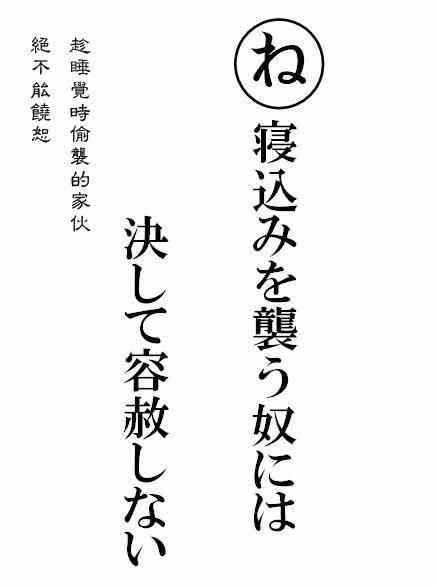 ね
寝込みを襲う奴には
決して容赦しない
趁睡覺時偷襲的家伙
絕不能饒恕